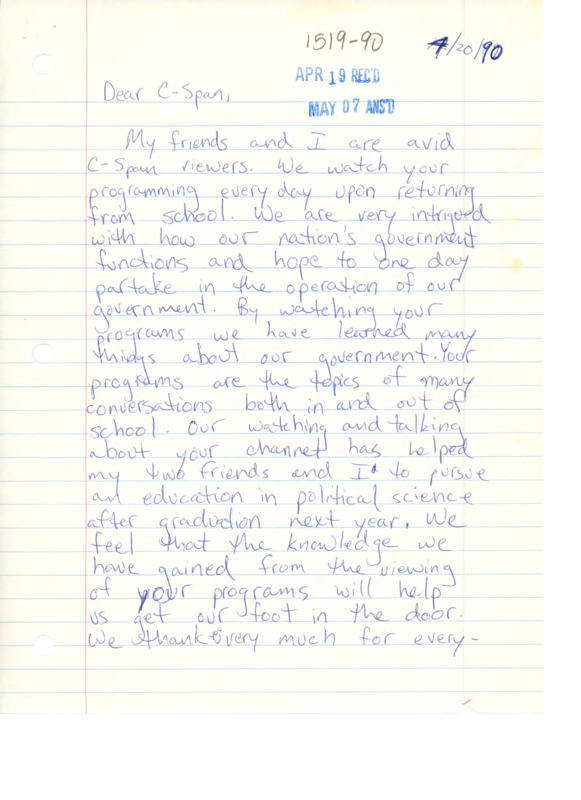 1519-90
4/20/90
APR 19 REC'D
Dear C-Span,
MAY 07 ANS'D
My friends and I are avid
C-Span viewers. We watch your
programming every day upon returning
from school. We are very intrigued
with how our nation's government
functions and hope to one day
partake in the operation of our
government. By watching your
programs we have learned many
things about our government. Your
programs are the topics of many
conversations both in and out of
school. Our watching and talking
about your channel has helped
my two friends and I to pursue
an education in political science
after graduation next year. We
feel that the knowledge we
have gained from the viewing
of your programs will help
us get our foot in the door.
We thank very much for every-